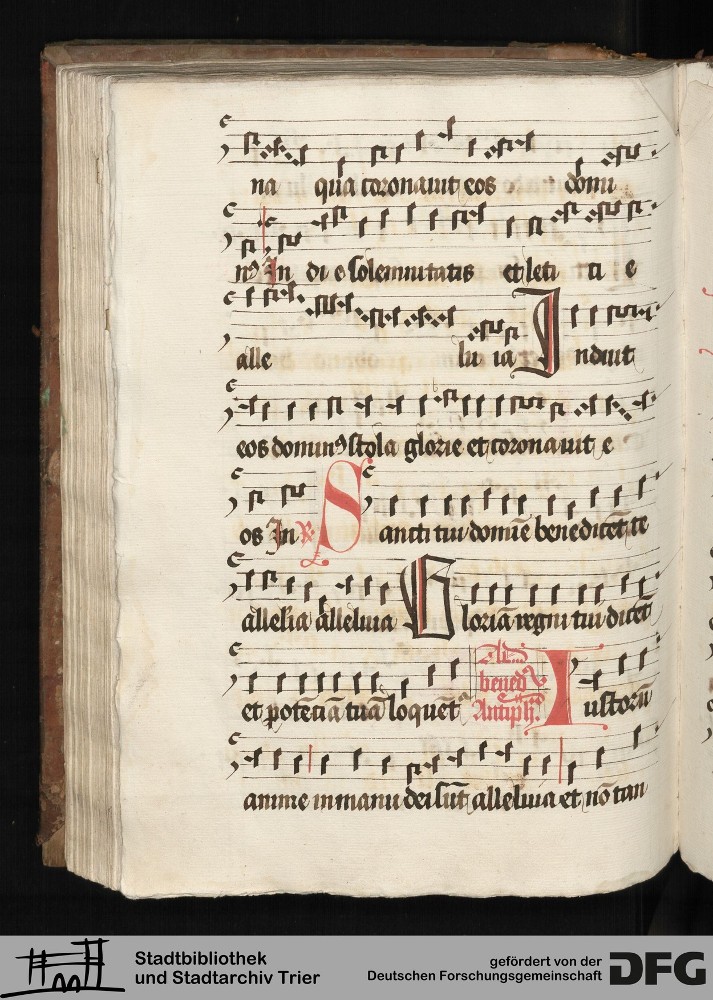 na qua coronauit eos domi
nꝰ In di e solennitatis et leti ti e
alle lu ia Induit
eos dominꝰ stola glorie et coronauit e
os In R. Sancti tui domīe benedicēt te
allelia alleluia Gloriā regni tui dicēt
et potētiā tuā loquēt Ad bened Antiph. Iustorū
anime in manu dei sūt alleluia et nō tan
Stadtbibliothek
und Stadtarchiv Trier
gefördert von der
Deutschen Forschungsgemeinschaft
DFG